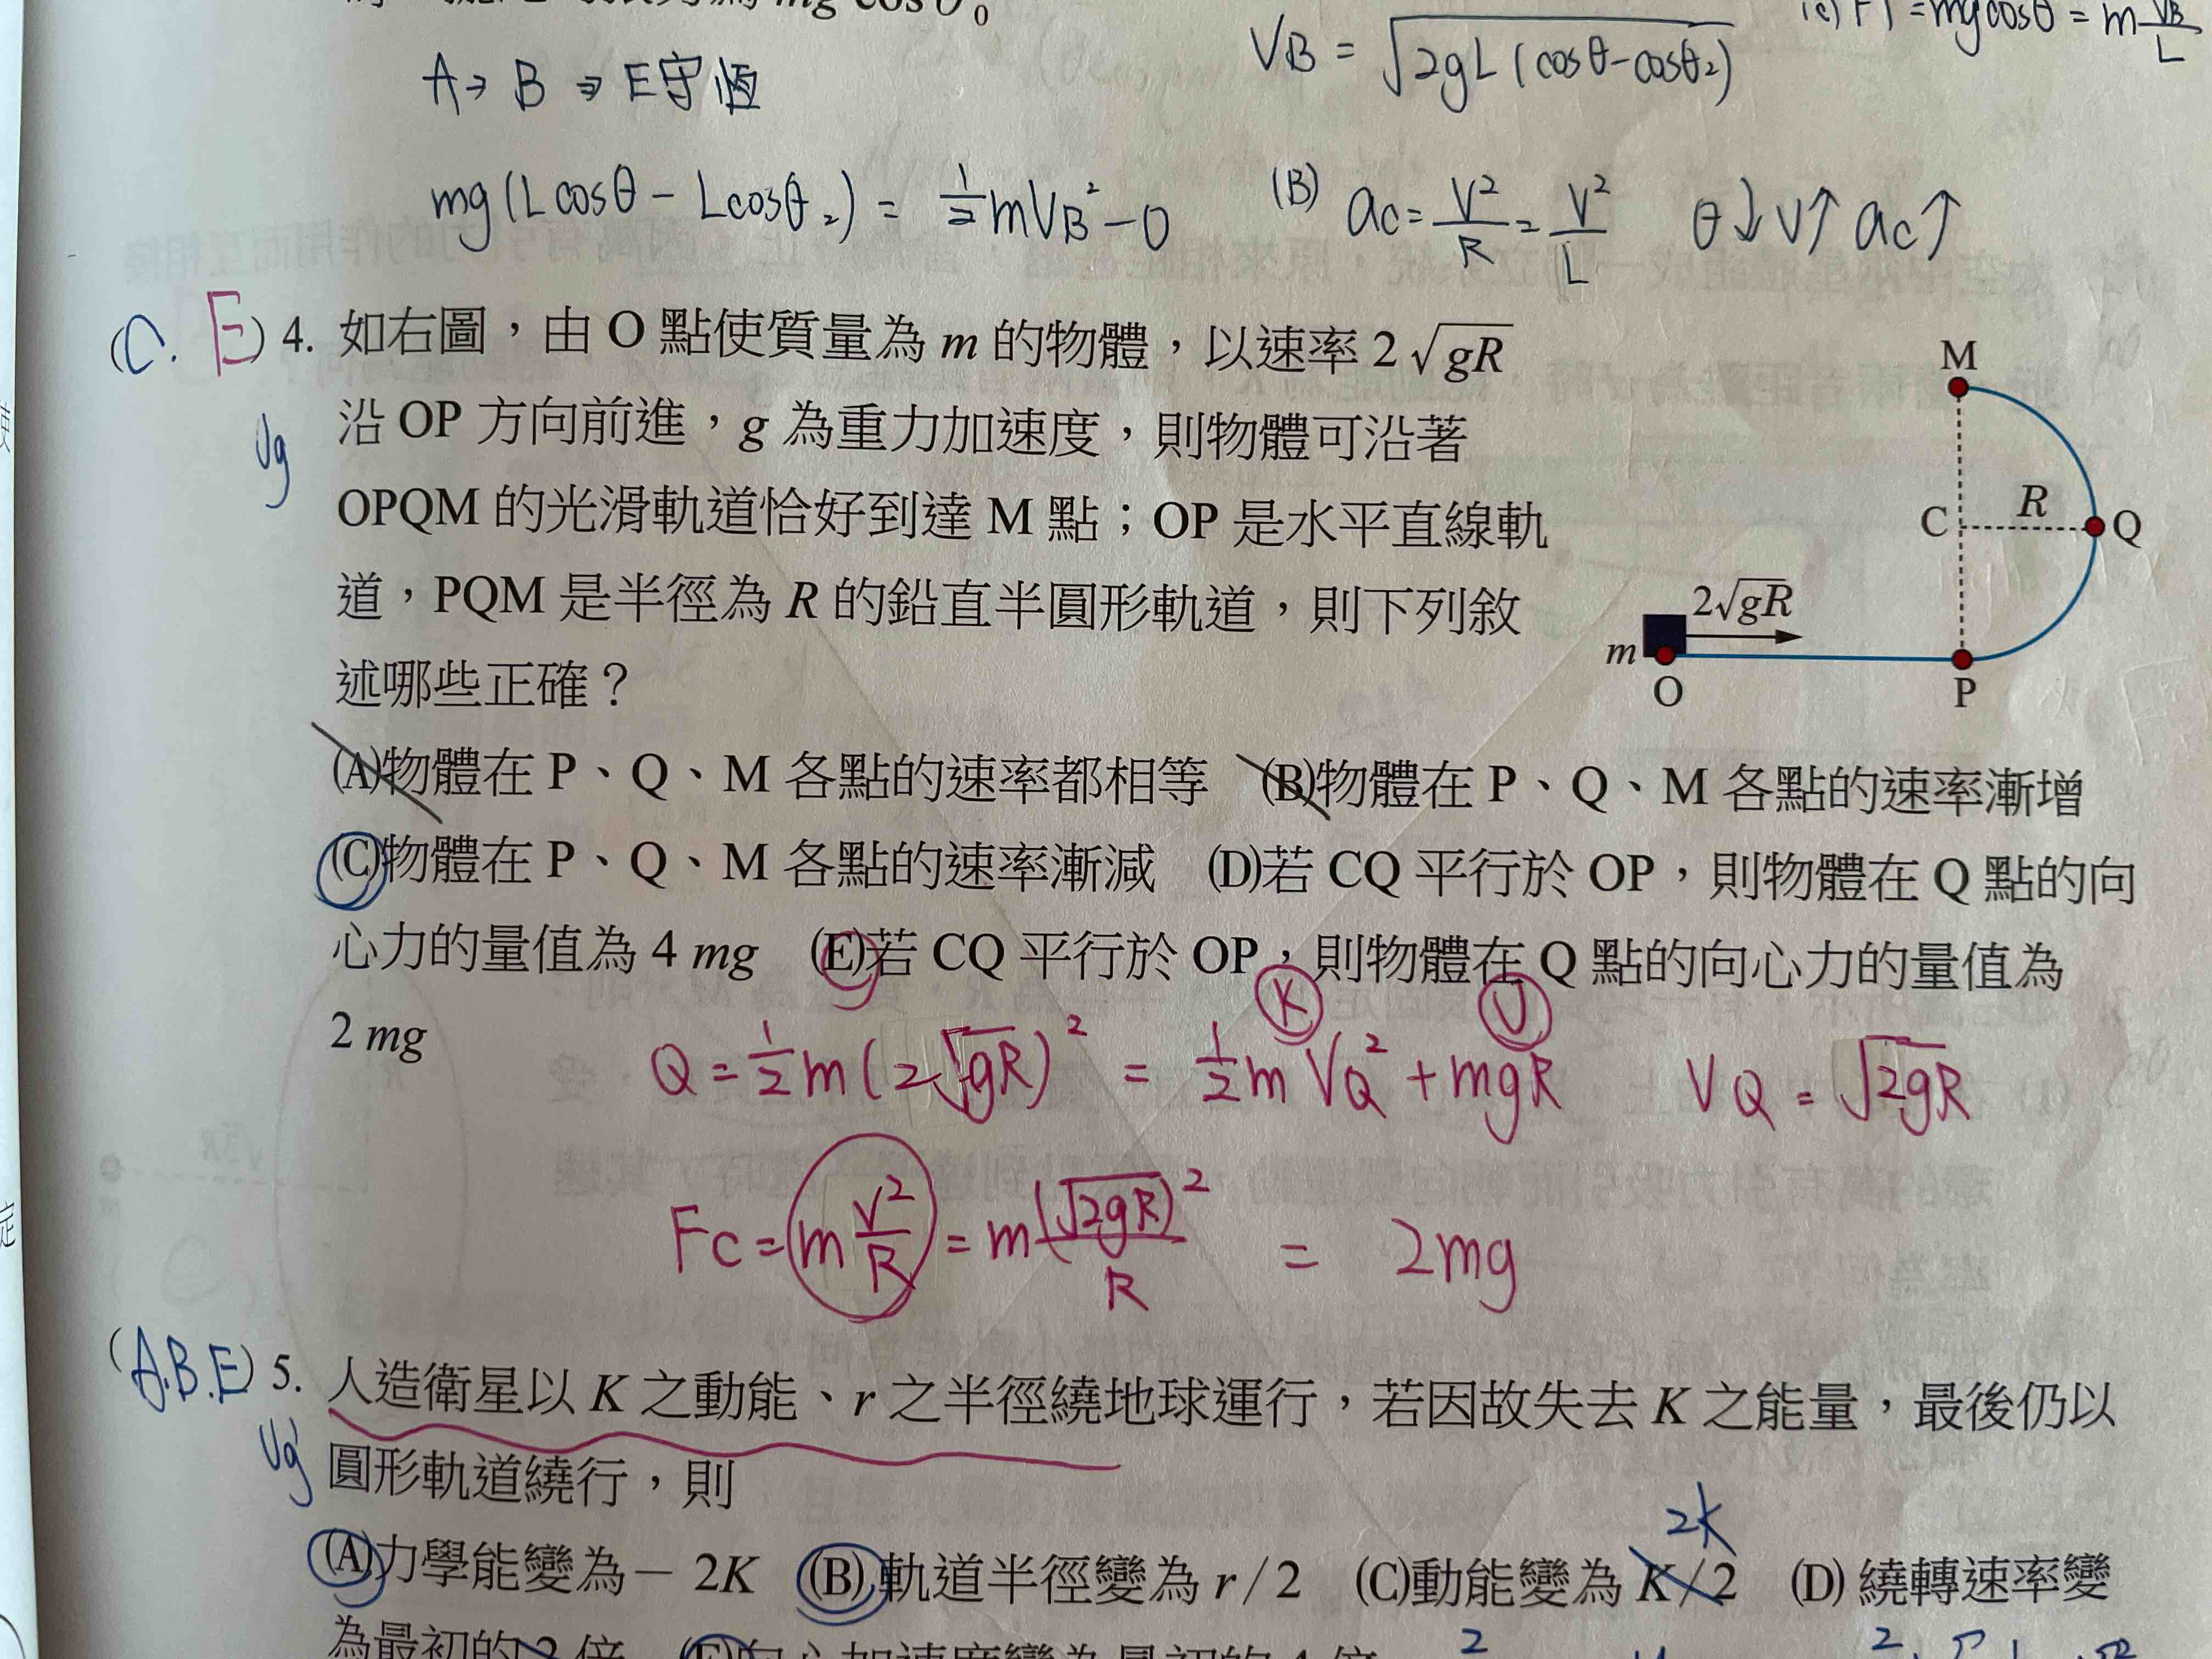 mg cos θ₀
V_B = √2gL(cosθ-cosθ₂)
mgcosθ = m V_B/L
A→B ⇒ E守恆
mg(Lcosθ - Lcosθ₂) = ½mV_B² - 0
(B) ac = V²/R = V²/L θ↓V↑ ac↑
(C. E) 4. 如右圖,由 O 點使質量為 m 的物體,以速率 2√gR
Ug 沿 OP 方向前進,g 為重力加速度,則物體可沿著
OPQM 的光滑軌道恰好到達 M 點;OP 是水平直線軌
道,PQM 是半徑為 R 的鉛直半圓形軌道,則下列敘
述哪些正確?
M
C R Q
2√gR
m
O P
(A)物體在 P、Q、M 各點的速率都相等 (B)物體在 P、Q、M 各點的速率漸增
(C)物體在 P、Q、M 各點的速率漸減 (D)若 CQ 平行於 OP,則物體在 Q 點的向
心力的量值為 4 mg (E)若 CQ 平行於 OP,則物體在 Q 點的向心力的量值為
2 mg
K U
Q = ½m(2√gR)² = ½mV_Q² + mgR V_Q = √2gR
Fc = m V²/R = m (√2gR)²/R = 2mg
(A.B.E) 5. 人造衛星以 K 之動能、r 之半徑繞地球運行,若因故失去 K 之能量,最後仍以
Ug' 圓形軌道繞行,則
2K
(A)力學能變為- 2K (B)軌道半徑變為 r/2 (C)動能變為 K/2 (D) 繞轉速率變
為最初的 2 倍 (E)向心加速度變為最初的 4 倍